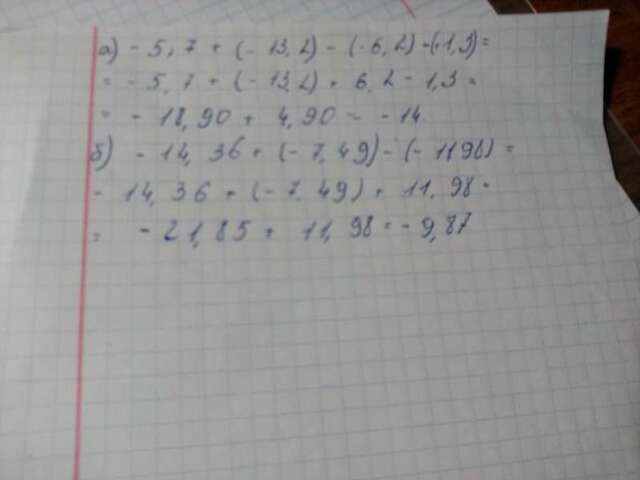 а) - 5,7 + (- 13,2) - (-6,2) - (+1,3) =
= - 5,7 + (-13,2) + 6,2 - 1,3 =
= - 18,90 + 4,90 = - 14
б) - 14,36 + (- 7,49) - (- 11 98) =
- 14,36 + (- 7,49) + 11,98 =
= - 21,85 + 11,98 = - 9,87